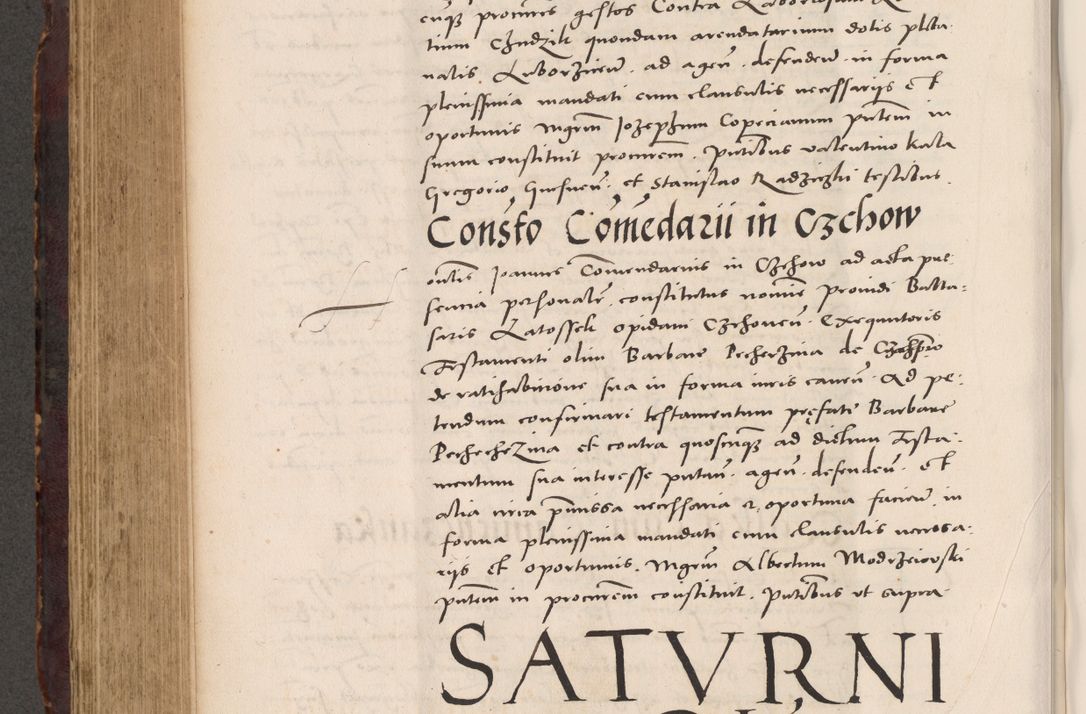 cu̇sq procures gestos Contra Laboriosum
tinum Czudzik quondam arendatarium dotis pleba-
nalis Luborzicen̄. ad agen̄. defenden̄. in forma
plenissima mandati cum clausulis necessariis et
oportunis Mgr̄m Jozephum Copecianum p̄ntem in
suum constituit procurem̄. p̄ntibus valentino kala
Gregorio Gnesnen̄. et Stanislao Radziczki testibus.
Consto Comedarii in Czchow
Joannes Commendarius in Czchow ad acta pre-
sencia personalr̄ constitutus nomine providi Balta-
saris Latossek opidani Czchoven̄. Exequutoris
Testamenti olim Barbare Pecherzina de
de ratihabicione sua in forma iuris caven̄. Ad pe-
tendum confirmari testamentum prefate Barbare
Pecherzina et contra quoscunq ad dictum Testa-
mentum sua interesse putan̄. agen̄. defenden̄. et
alia circa p̄missa necessaria et oportuna facien̄. in
forma plenissima mandati cum clausulis necessa-
riis et oportunis. Mgr̄m Albertum Modrzeiowski
p̄ntem in procurem̄ constituit. p̄ntibus ut supra
SATVRNI